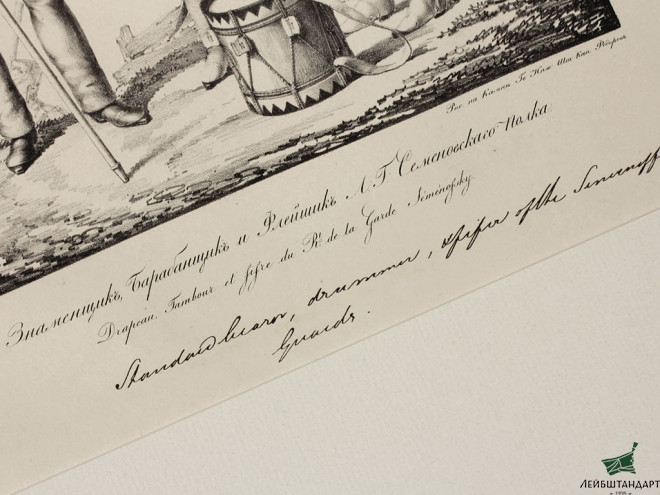 Рис. на Камни Ге Кап.
Знаменщикъ, Барабанщикъ и Флейщикъ Л. Г. Семеновскаго Полка.
Drapeau, Tambour et fifre du Rt. de la Garde Séménofsky.
Standard bearer, drummer, & fifer of the
Guards.
ЛЕЙБШТАНДАРТ
1991